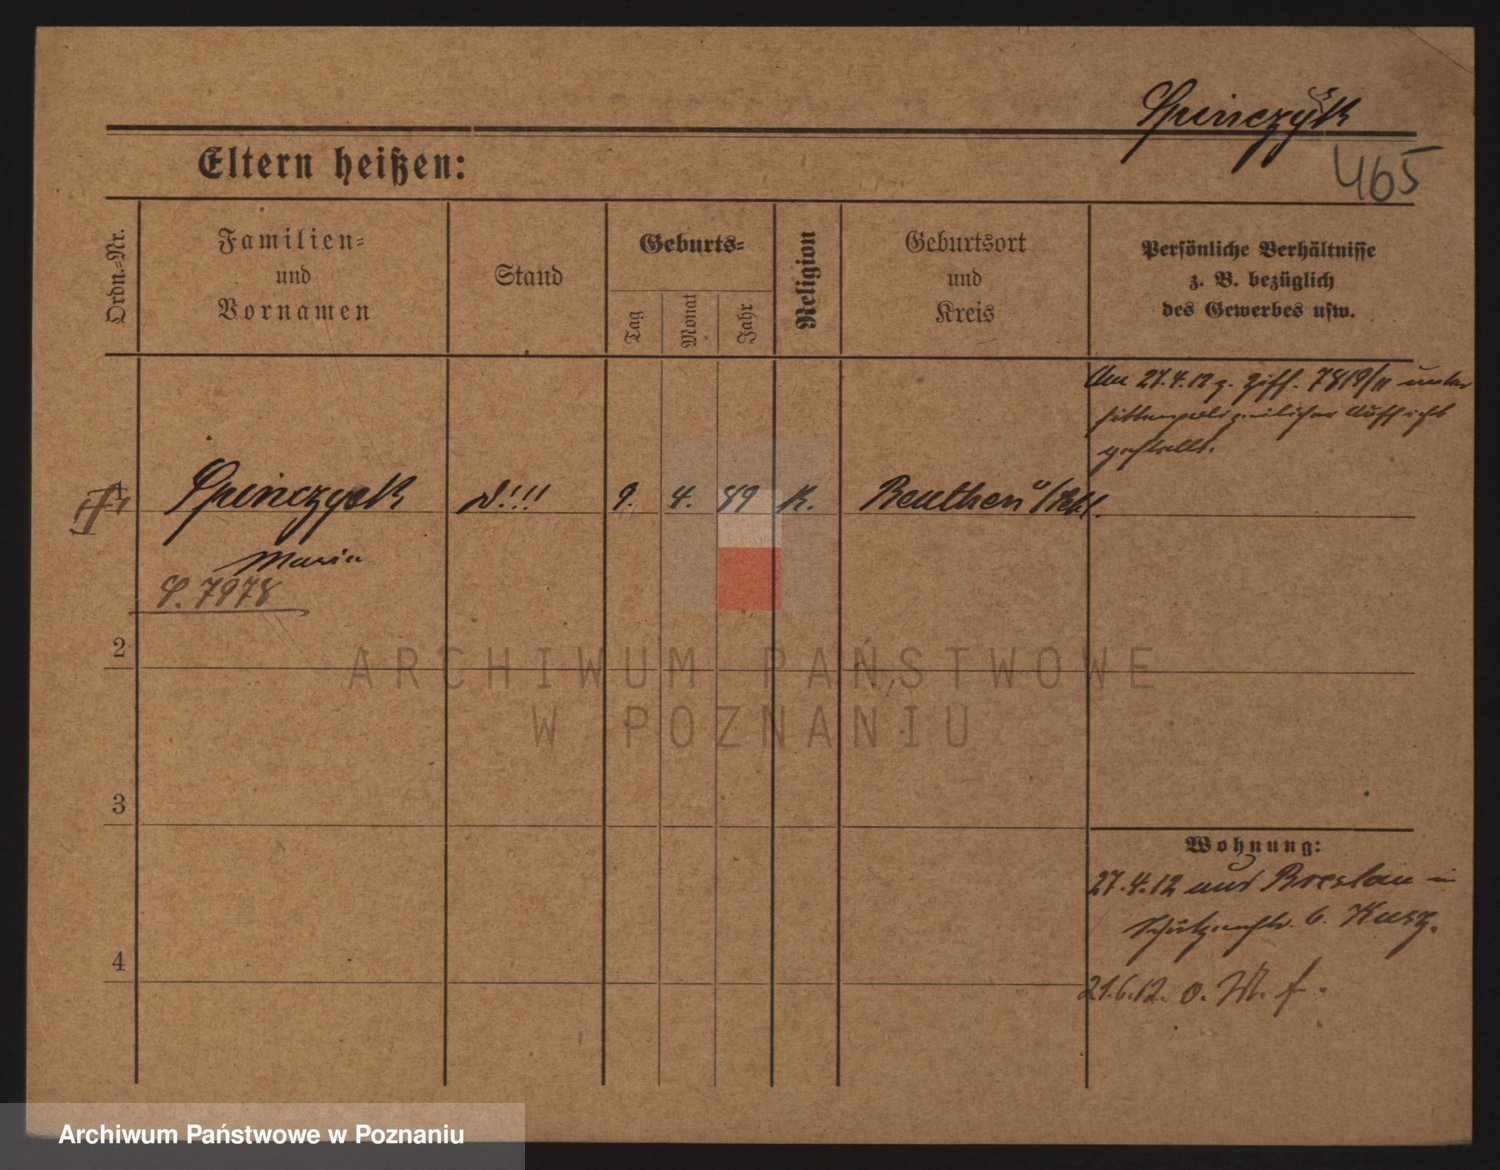 Spinczyk
465
Eltern heißen:
Ordn.-Nr.
Familien-
und
Vornamen
Stand
Geburts-
Tag
Monat
Jahr
Religion
Geburtsort
und
Kreis
Persönliche Verhältnisse
z. B. bezüglich
des Gewerbes usw.
Am 27.4.12 z. Ziff. 7819/11 unter
sittenpolizeilicher Aufsicht
gestellt.
1
Spinczyk
9. 4. 89 K.
Beuthen
Maria
S. 7978
2
3
4
Wohnung:
27.4.12 aus Breslau in
Schützenstr. 6.
21.6.12. o.
ARCHIWUM PAŃSTWOWE
W POZNANIU
Archiwum Państwowe w Poznaniu